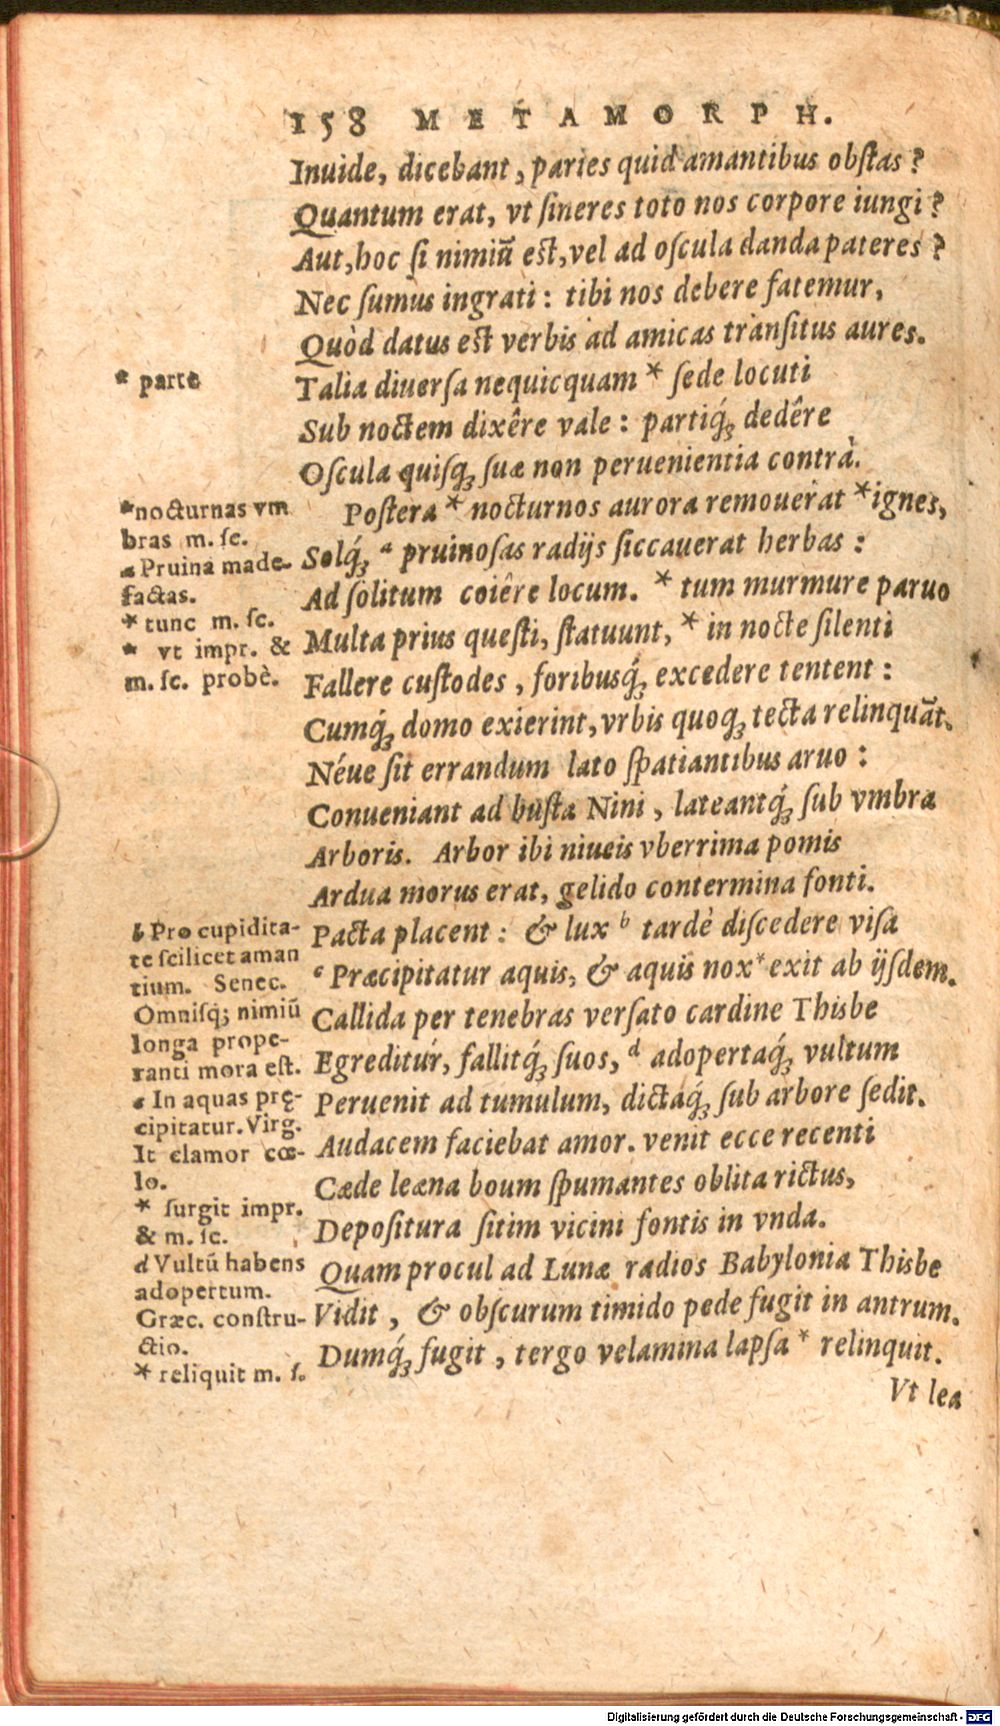 158 METAMORPH.
Inuide, dicebant, paries quid amantibus obſtas?
Quantum erat, vt ſineres toto nos corpore iungi?
Aut, hoc ſi nimiū est, vel ad oſcula danda pateres?
Nec ſumus ingrati: tibi nos debere fatemur,
Quòd datus est verbis ad amicas tranſitus aures.
Talia diuerſa nequicquam * ſede locuti
Sub noctem dixêre vale: partiq́ꝫ dedêre
Oſcula quiſqꝫ ſuæ non peruenientia contrà.
Poſtera * nocturnos aurora remouerat * ignes,
Solq́ꝫ a pruinoſas radijs ſiccauerat herbas:
Ad ſolitum coiêre locum. * tum murmure paruo
Multa prius queſti, ſtatuunt, * in nocte ſilenti
Fallere cuſtodes, foribusq́ꝫ excedere tentent:
Cumq́ꝫ domo exierint, vrbis quoqꝫ tecta relinquāt.
Néue ſit errandum lato ſpatiantibus aruo:
Conueniant ad buſta Nini, lateantq́ꝫ ſub vmbra
Arboris. Arbor ibi niueis vberrima pomis
Ardua morus erat, gelido contermina fonti.
Pacta placent: & lux b tardè diſcedere viſa
c Præcipitatur aquis, & aquis nox * exit ab ijſdem.
Callida per tenebras verſato cardine Thisbe
Egreditur, fallitq́ꝫ ſuos, d adopertaq́ꝫ vultum
Peruenit ad tumulum, dictaq́ꝫ ſub arbore ſedit.
Audacem faciebat amor. venit ecce recenti
Cæde leæna boum ſpumantes oblita rictus,
Depoſitura ſitim vicini fontis in vnda.
Quam procul ad Lunæ radios Babylonia Thisbe
Vidit, & obſcurum timido pede fugit in antrum.
Dumq́ꝫ fugit, tergo velamina lapſa * relinquit.
Vt lea
* parte
*nocturnas vm
bras m. ſc.
a Pruina made-
factas.
* tunc m. ſc.
* vt impr. &
m. ſc. probè.
b Pro cupidita-
te ſcilicet aman
tium. Senec.
Omniſqꝫ nimiū
longa prope-
ranti mora eſt.
c In aquas prę-
cipitatur. Virg.
It clamor cœ-
lo.
* ſurgit impr.
& m. ſc.
d Vultū habens
adopertum.
Græc. conſtru-
ctio.
* reliquit m. ſ.
Digitalisierung gefördert durch die Deutsche Forschungsgemeinschaft - DFG